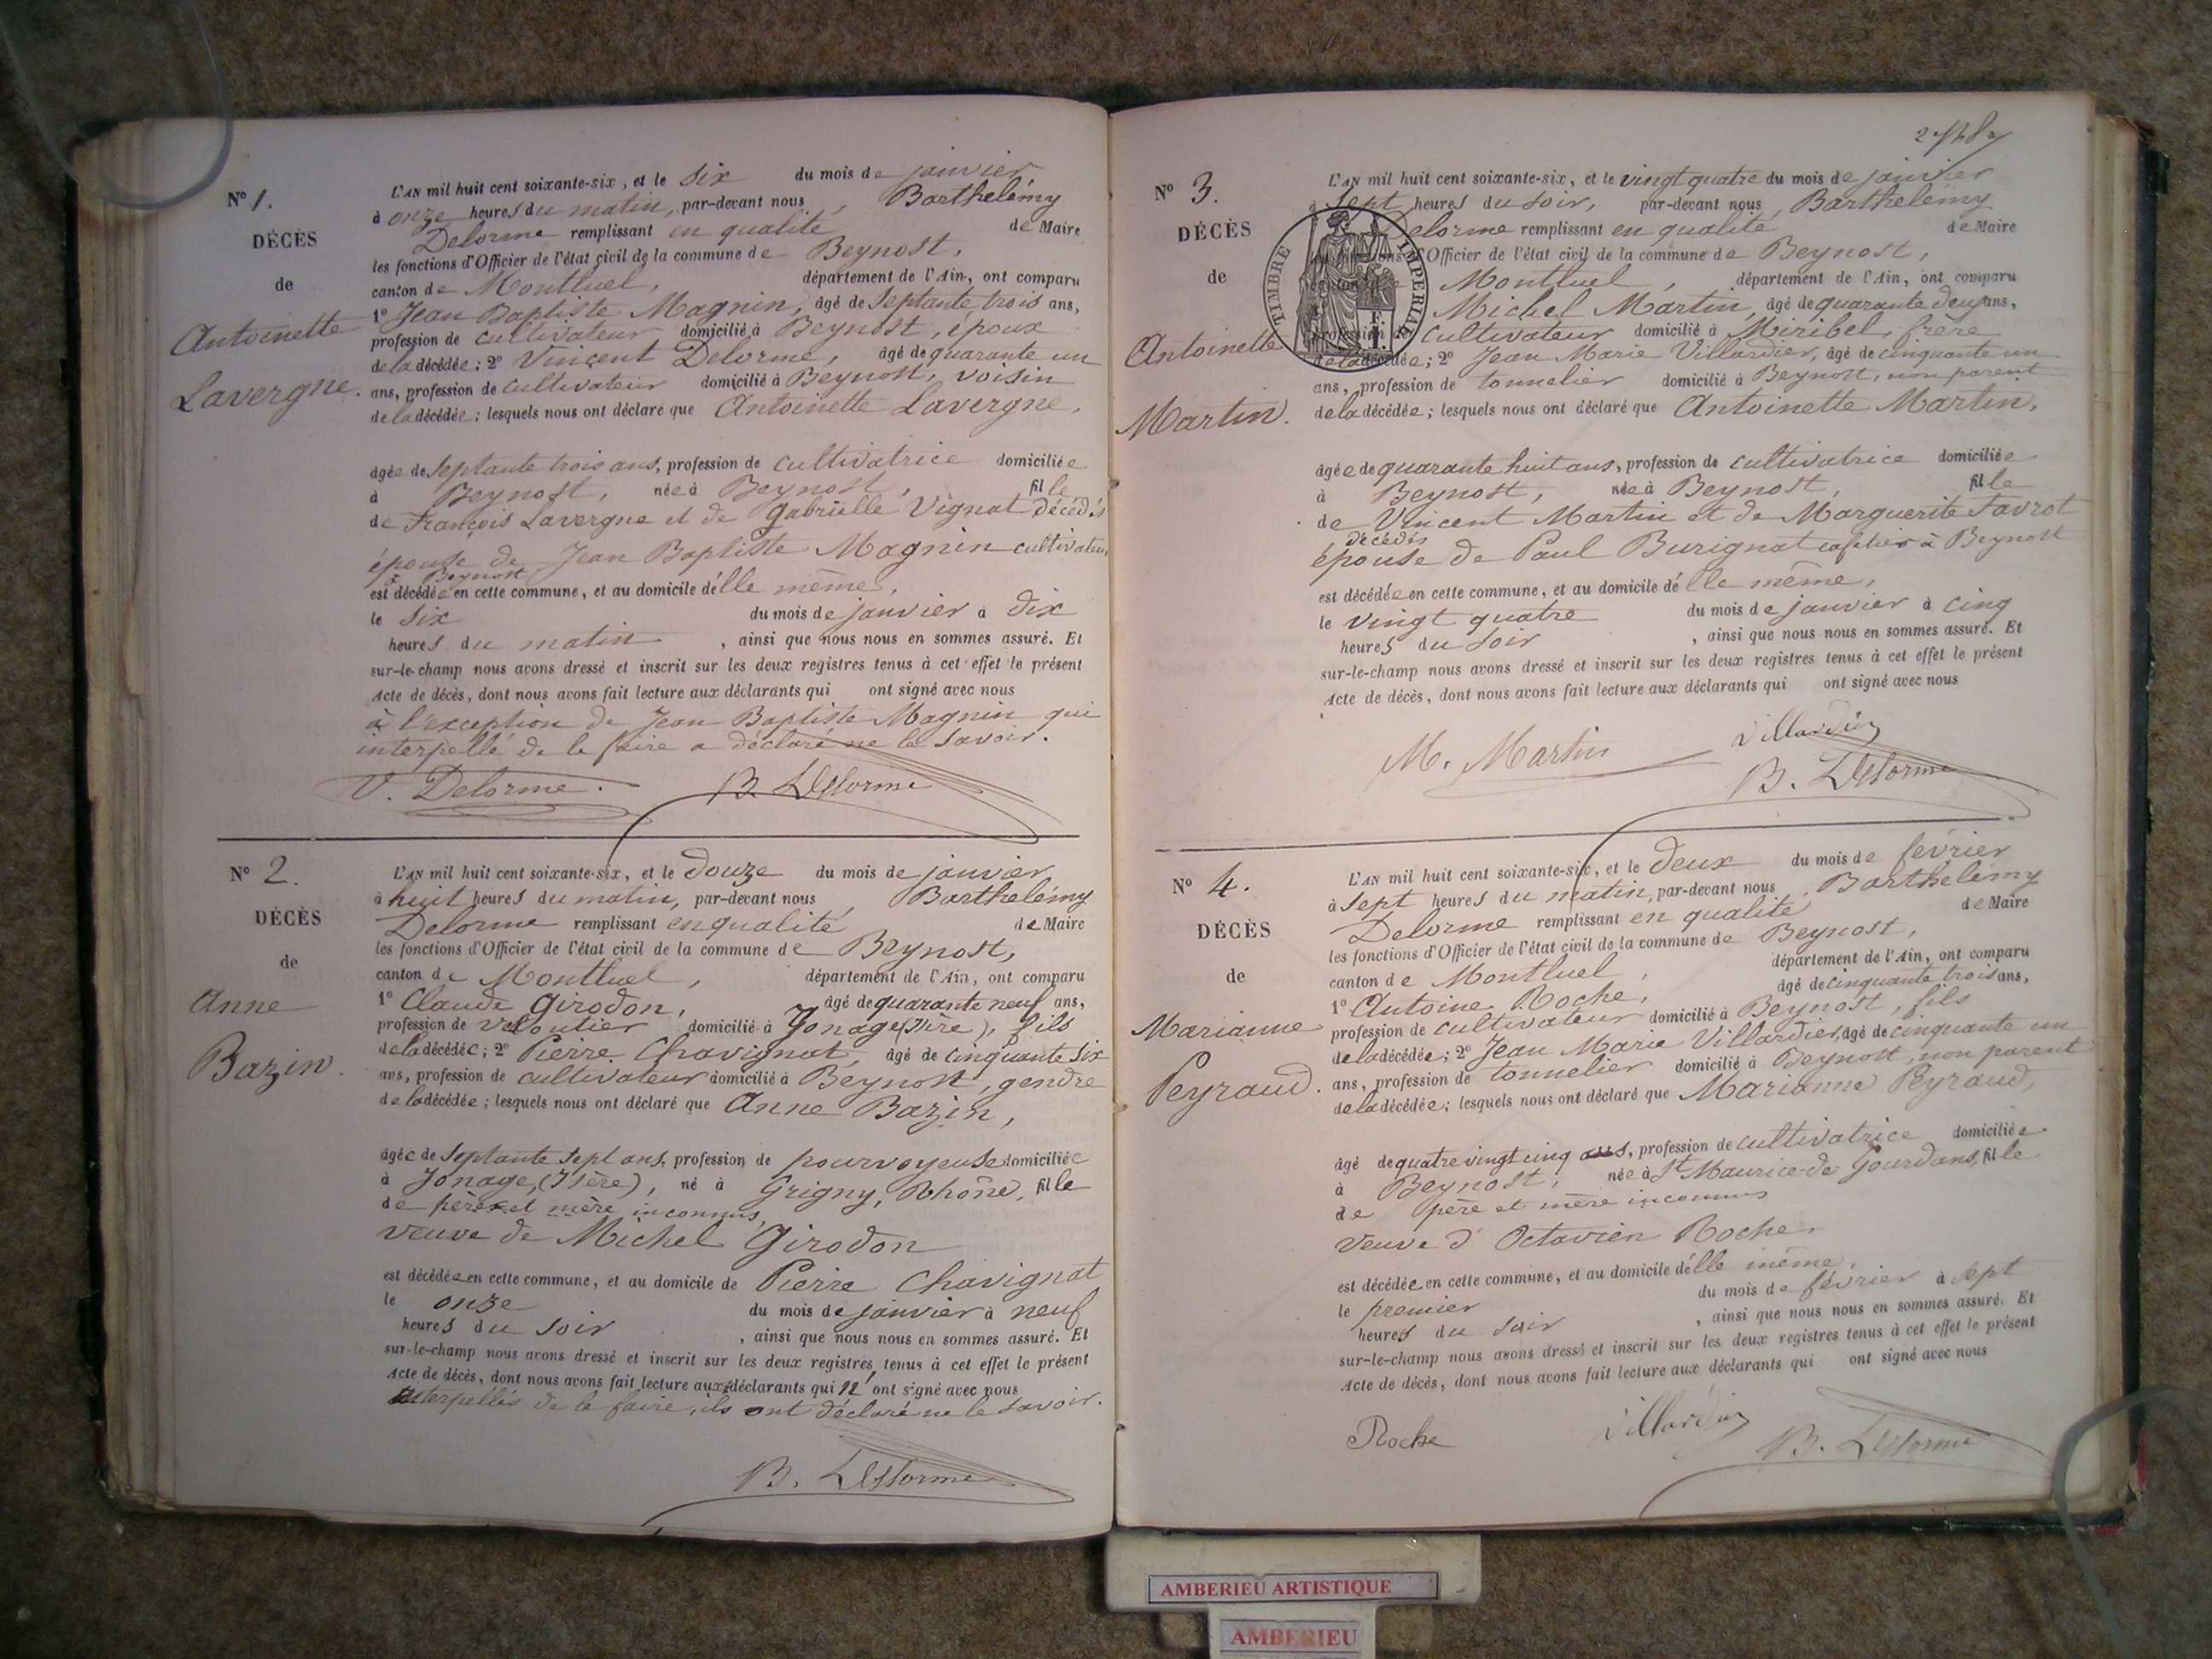 N° 1.
DÉCÈS
de
Antoinette
Lavergne.
L'AN mil huit cent soixante-six, et le six du mois de janvier
à onze heures du matin, par-devant nous, Barthelémy
Delorme remplissant en qualité de Maire
les fonctions d'Officier de l'état civil de la commune de Beynost,
canton de Montluel, département de l'Ain, ont comparu
1° Jean Baptiste Magnin, âgé de septante trois ans,
profession de cultivateur domicilié à Beynost, époux
de la décédée; 2° Vincent Delorme, âgé de quarante un
ans, profession de cultivateur domicilié à Beynost, voisin
de la décédée; lesquels nous ont déclaré que Antoinette Lavergne,
âgée de septante trois ans, profession de cultivatrice domiciliée
à Beynost, née à Beynost, fille
de François Lavergne et de Gabrielle Vignat décédés
épouse de Jean Baptiste Magnin cultivateur
à Beynost
est décédée en cette commune, et au domicile d'elle même,
le six du mois de janvier à dix
heures du matin, ainsi que nous nous en sommes assuré. Et
sur-le-champ nous avons dressé et inscrit sur les deux registres tenus à cet effet le présent
Acte de décès, dont nous avons fait lecture aux déclarants qui ont signé avec nous
à l'exception de Jean Baptiste Magnin qui
interpellé de le faire a déclaré ne le savoir.
V. Delorme. B. Delorme
N° 2.
DÉCÈS
de
Anne
Bazin.
L'AN mil huit cent soixante-six, et le douze du mois de janvier
à huit heures du matin, par-devant nous, Barthelémy
Delorme remplissant en qualité de Maire
les fonctions d'Officier de l'état civil de la commune de Beynost,
canton de Montluel, département de l'Ain, ont comparu
1° Claude Girodon, âgé de quarante neuf ans,
profession de veloutier domicilié à Jonage (Isère), fils
de la décédée; 2° Pierre Chavignat, âgé de cinquante six
ans, profession de cultivateur domicilié à Beynost, gendre
de la décédée; lesquels nous ont déclaré que Anne Bazin,
âgée de septante sept ans, profession de pourvoyeuse domiciliée
à Jonage, (Isère), né à Grigny, Rhône, fille
de père et mère inconnus,
veuve de Michel Girodon
est décédée en cette commune, et au domicile de Pierre Chavignat
le onze du mois de janvier à neuf
heures du soir, ainsi que nous nous en sommes assuré. Et
sur-le-champ nous avons dressé et inscrit sur les deux registres tenus à cet effet le présent
Acte de décès, dont nous avons fait lecture aux déclarants qui n' ont signé avec nous
interpellés de le faire, ils ont déclaré ne le savoir.
B. Delorme
N° 3.
DÉCÈS
de
Antoinette
Martin.
TIMBRE IMPERIAL
L'AN mil huit cent soixante-six, et le vingt quatre du mois de janvier
à sept heures du soir, par-devant nous, Barthelémy
Delorme remplissant en qualité de Maire
Officier de l'état civil de la commune de Beynost,
Montluel, département de l'Ain, ont comparu
Michel Martin, âgé de quarante deux ans,
profession de cultivateur domicilié à Miribel, frère
de la décédée; 2° Jean Marie Villardier, âgé de cinquante un
ans, profession de tonnelier domicilié à Beynost, non parent
de la décédée; lesquels nous ont déclaré que Antoinette Martin,
âgée de quarante huit ans, profession de cultivatrice domiciliée
à Beynost, née à Beynost, fille
de Vincent Martin et de Marguerite Favrot
décédés
épouse de Paul Burignat cafetier à Beynost
est décédée en cette commune, et au domicile d'elle même,
le vingt quatre du mois de janvier à cinq
heures du soir, ainsi que nous nous en sommes assuré. Et
sur-le-champ nous avons dressé et inscrit sur les deux registres tenus à cet effet le présent
Acte de décès, dont nous avons fait lecture aux déclarants qui ont signé avec nous
M. Martin Villardier
B. Delorme
N° 4.
DÉCÈS
de
Marianne
Peyraud.
L'AN mil huit cent soixante-six, et le deux du mois de février
à sept heures du matin, par-devant nous, Barthelémy
Delorme remplissant en qualité de Maire
les fonctions d'Officier de l'état civil de la commune de Beynost,
canton de Montluel, département de l'Ain, ont comparu
1° Antoine Roche, âgé de cinquante trois ans,
profession de cultivateur domicilié à Beynost, fils
de la décédée; 2° Jean Marie Villardier, âgé de cinquante un
ans, profession de tonnelier domicilié à Beynost, non parent
de la décédée; lesquels nous ont déclaré que Marianne Peyraud,
âgé de quatre vingt cinq ans, profession de cultivatrice domiciliée
à Beynost, née à St Maurice-de Gourdans, fille
de père et mère inconnus
veuve d'Octavien Roche.
est décédée en cette commune, et au domicile d'elle même,
le premier du mois de février à sept
heures du soir, ainsi que nous nous en sommes assuré. Et
sur-le-champ nous avons dressé et inscrit sur les deux registres tenus à cet effet le présent
Acte de décès, dont nous avons fait lecture aux déclarants qui ont signé avec nous
Roche Villardier B. Delorme
AMBERIEU ARTISTIQUE
AMBERIEU